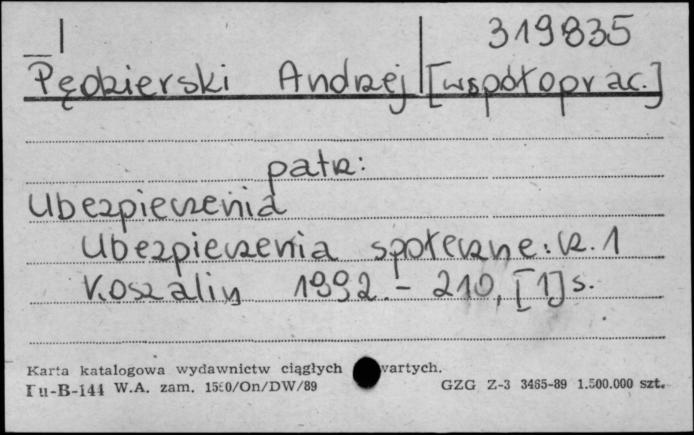 319835
Pędzierski Andrzej [współoprac.]
patrz:
Ubezpieczenia
Ubezpieczenia społeczne: cz. 1
Koszalin 1992. - 210, [1] s.
Karta katalogowa wydawnictw ciągłych wartych.
Pu-B-144 W.A. zam. 1550/On/DW/89 GZG Z-3 3465-89 1.500.000 szt.